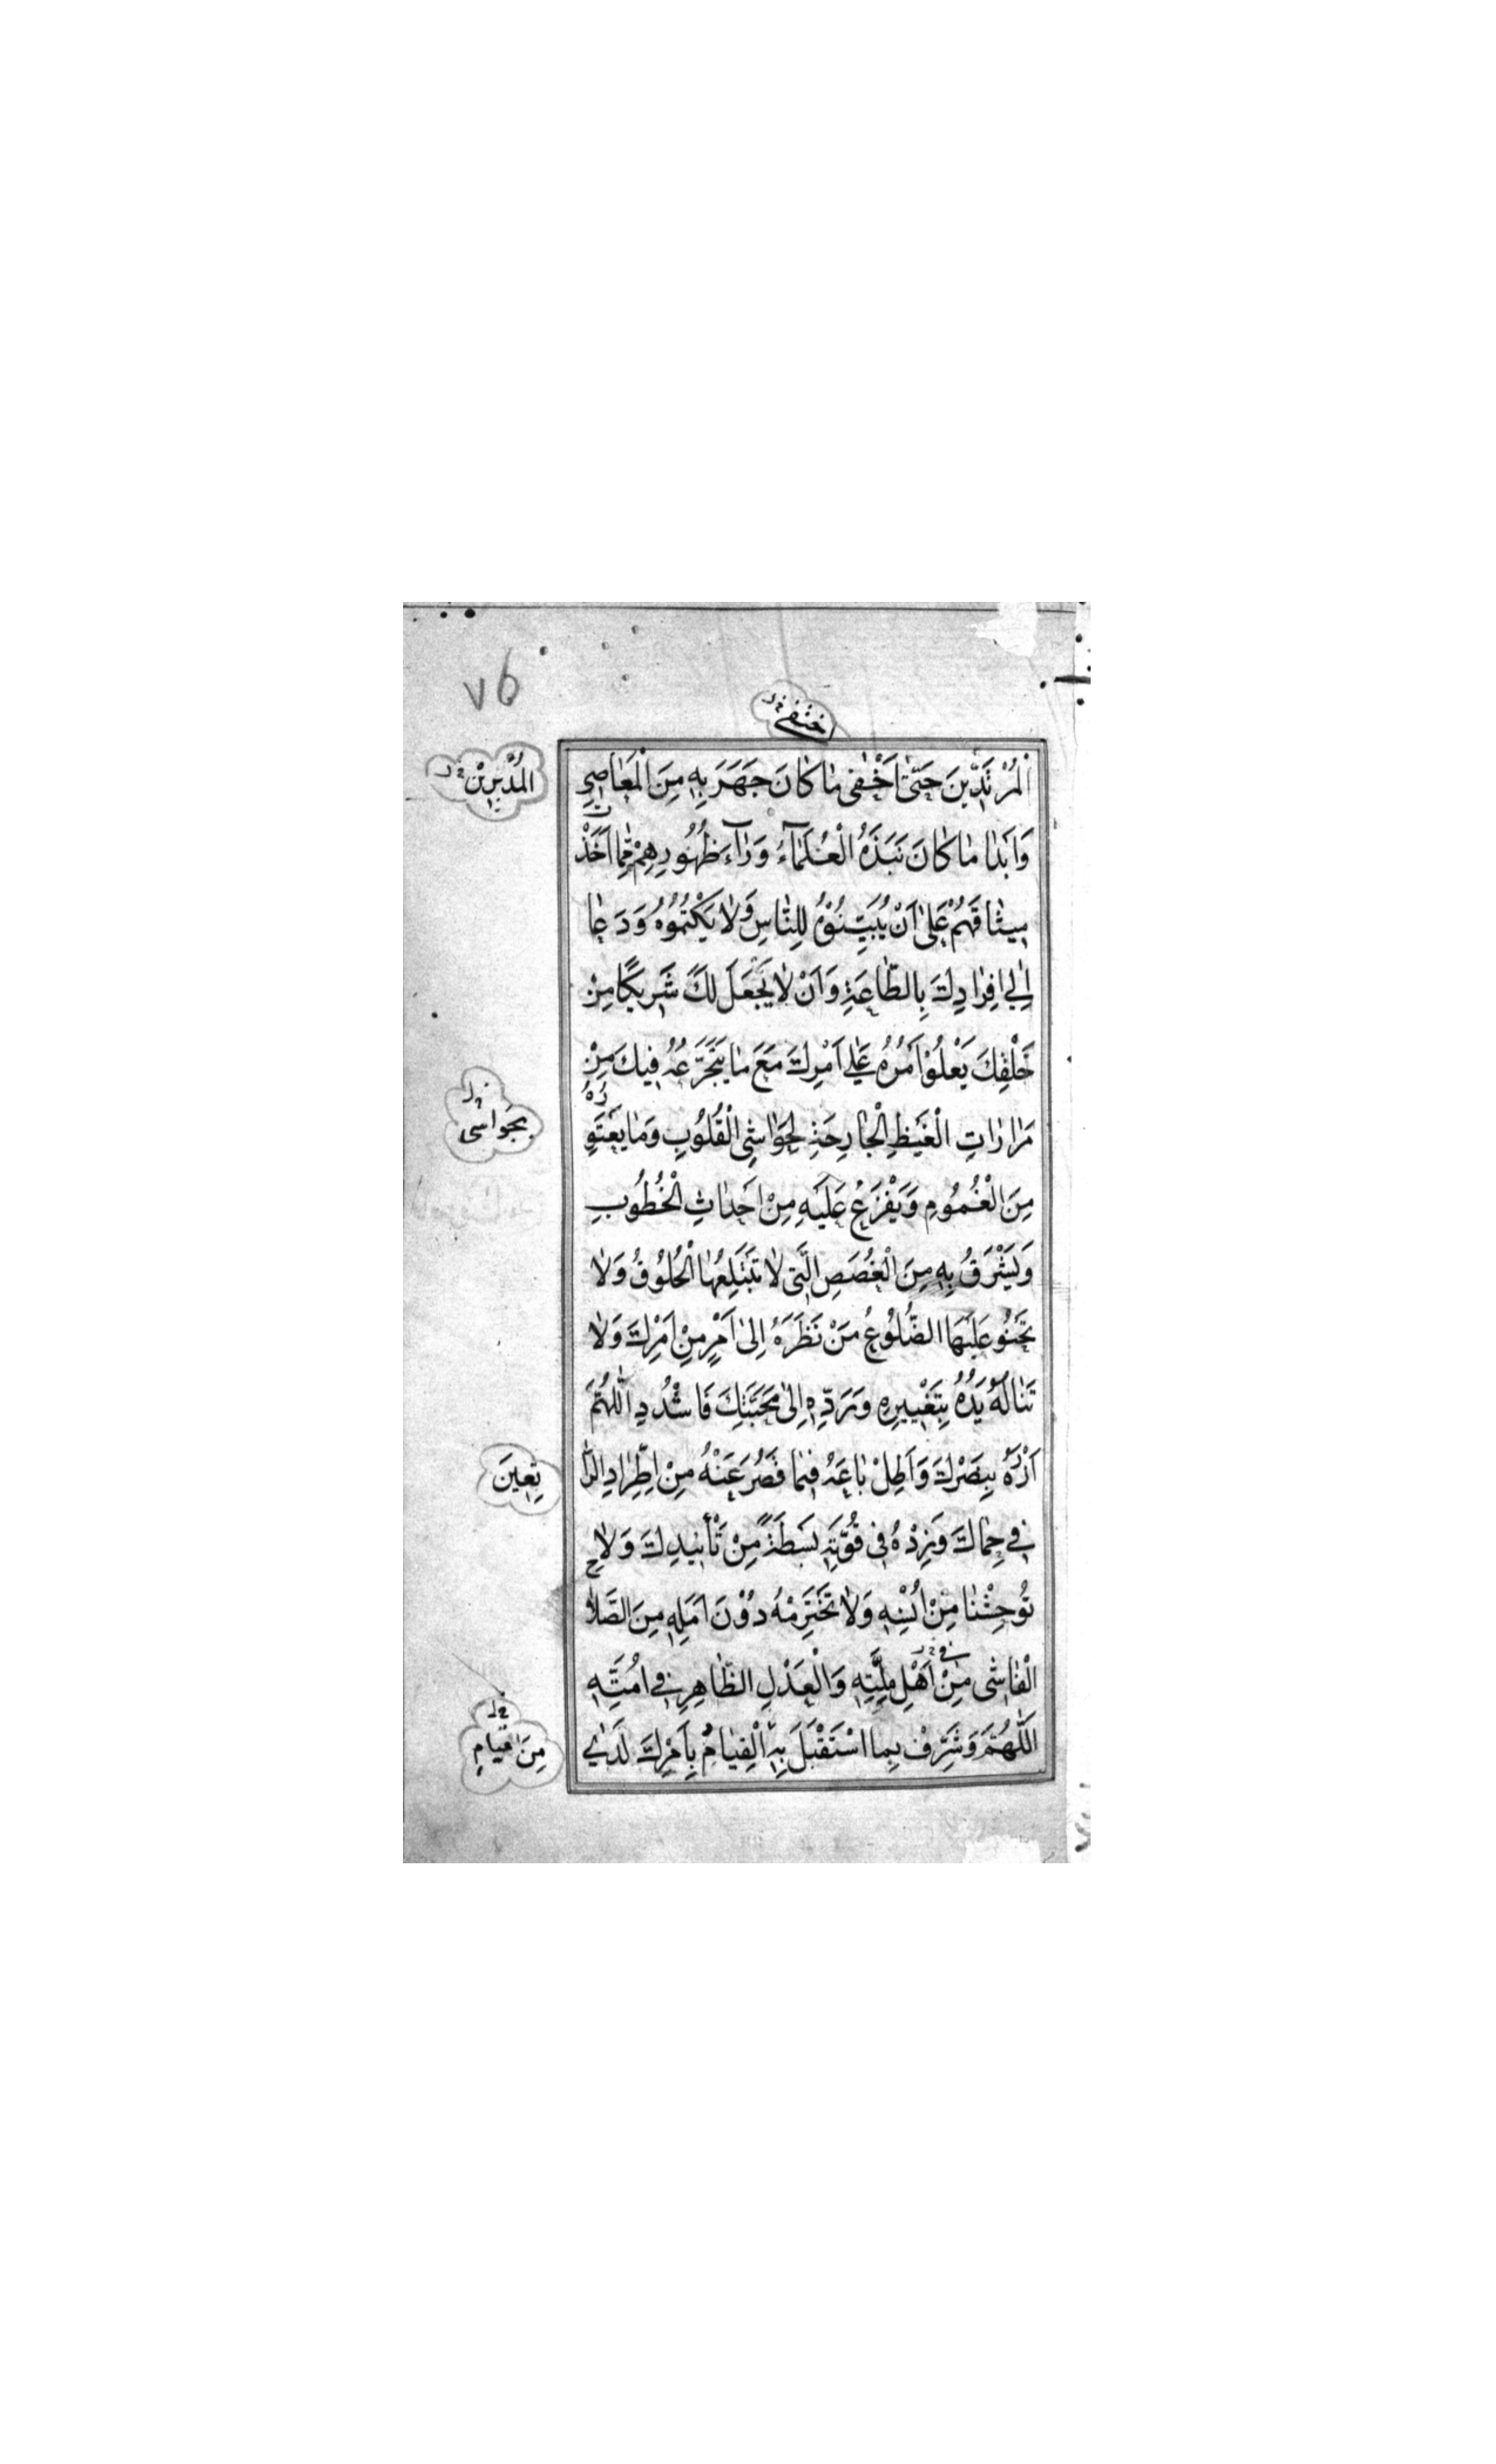 ۷۵
اختفى خ ل
اَلْمُرْتَدِّينَ حَتّىٰ اَخْفىٰ مٰا كٰانَ جَهَرَ بِهِ مِنَ الْمَعٰاصِي
المُدْبِرِيْنَ خ ل
وَاَبْدٰا مٰا كٰانَ نَبَذَهُ الْعُلَمٰآءُ وَرٰآءَ ظُهُوْرِهِمْ مِمّٰا اَخَذْتَ
مِيثٰاقَهُمْ عَلىٰ اَنْ يُبَيِّنُوْهُ لِلنّٰاسِ وَلٰا يَكْتُمُوْهُ وَدَعٰا
اِلىٰ اِفْرٰادِكَ بِالطّٰاعَةِ وَاَنْ لٰا يَجْعَلَ لَكَ شَرِيكًا مِنْ
خَلْقِكَ يَعْلُوْ اَمْرُهُ عَلىٰ اَمْرِكَ مَعَ مٰا يَتَجَرَّعُهُ فِيكَ مِنْ
مَرٰارٰاتِ الْغَيْظِ الْجٰارِحَةِ لِحَوٰاشِى الْقُلُوْبِ وَمٰا يَعْتَوِرُهُ
بجَوَاسى خ ل
مِنَ الْغُمُوْمِ وَيَفْزَعُ عَلَيْهِ مِنْ اَحْدٰاثِ الْخُطُوْبِ
وَيَشْرَقُ بِهِ مِنَ الْغُصَصِ الَّتى لٰا تَبْتَلِعُهَا الْحُلُوْقُ وَلٰا
تَحْنُو عَلَيْهَا الضُّلُوْعُ مَنْ نَظَرَهُ اِلىٰ اَمْرٍ مِنْ اَمْرِكَ وَلٰا
تَنٰالُهُ يَدُهُ بِتَغْيِيرِهِ وَرَدِّهِ اِلىٰ مَحَبَّتِكَ فَاشْدُدِ اللّٰهُمَّ
اَزْرَهُ بِنَصْرِكَ وَاَطِلْ بٰاعَهُ فِيمٰا قَصُرَ عَنْهُ مِنْ اِطِّرٰادِ الرّٰا
تِعينَ
فِي حِمٰاكَ وَزِدْهُ فِى قُوَّتِهِ بَسْطَةً مِنْ تَأْيِيدِكَ وَلٰا
تُوْحِشْنٰا مِنْ اُنْسِهِ وَلٰا تَخْتَرِمْهُ دُوْنَ اَمَلِهِ مِنَ الصَّلٰاحِ
الْفٰاشِى مِنْ اَهْلِ مِلَّتِهِ وَالْعَدْلِ الظّٰاهِرِ فِي اُمَّتِهِ
في خ ل
اَللّٰهُمَّ وَشَرِّفْ بِمَا اسْتَقْبَلَ بِهِ الْقِيٰامُ بِاَمْرِكَ لَدٰى
مِنَ القيامِ خ ل